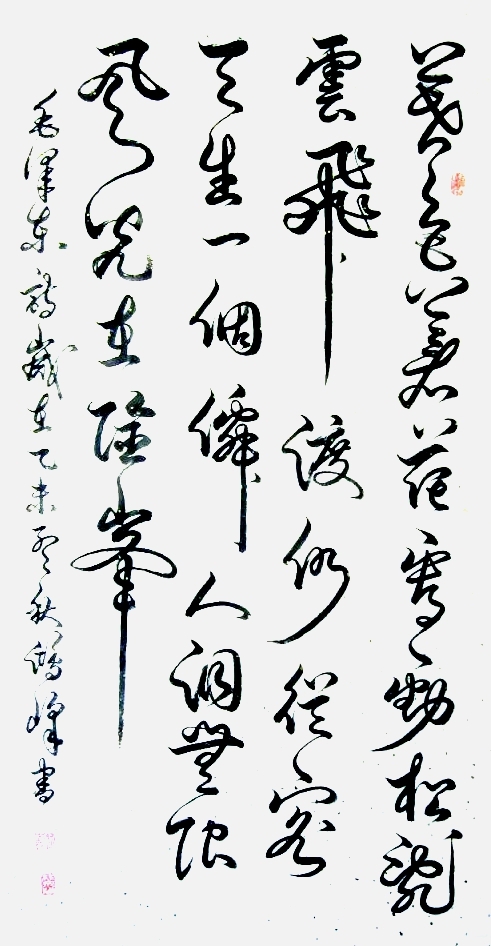 暮色蒼茫看勁松亂
雲飛渡仍從容
天生一個僊人洞無限
风光在險峯
毛澤東詩歲在乙未秋鴻峰書